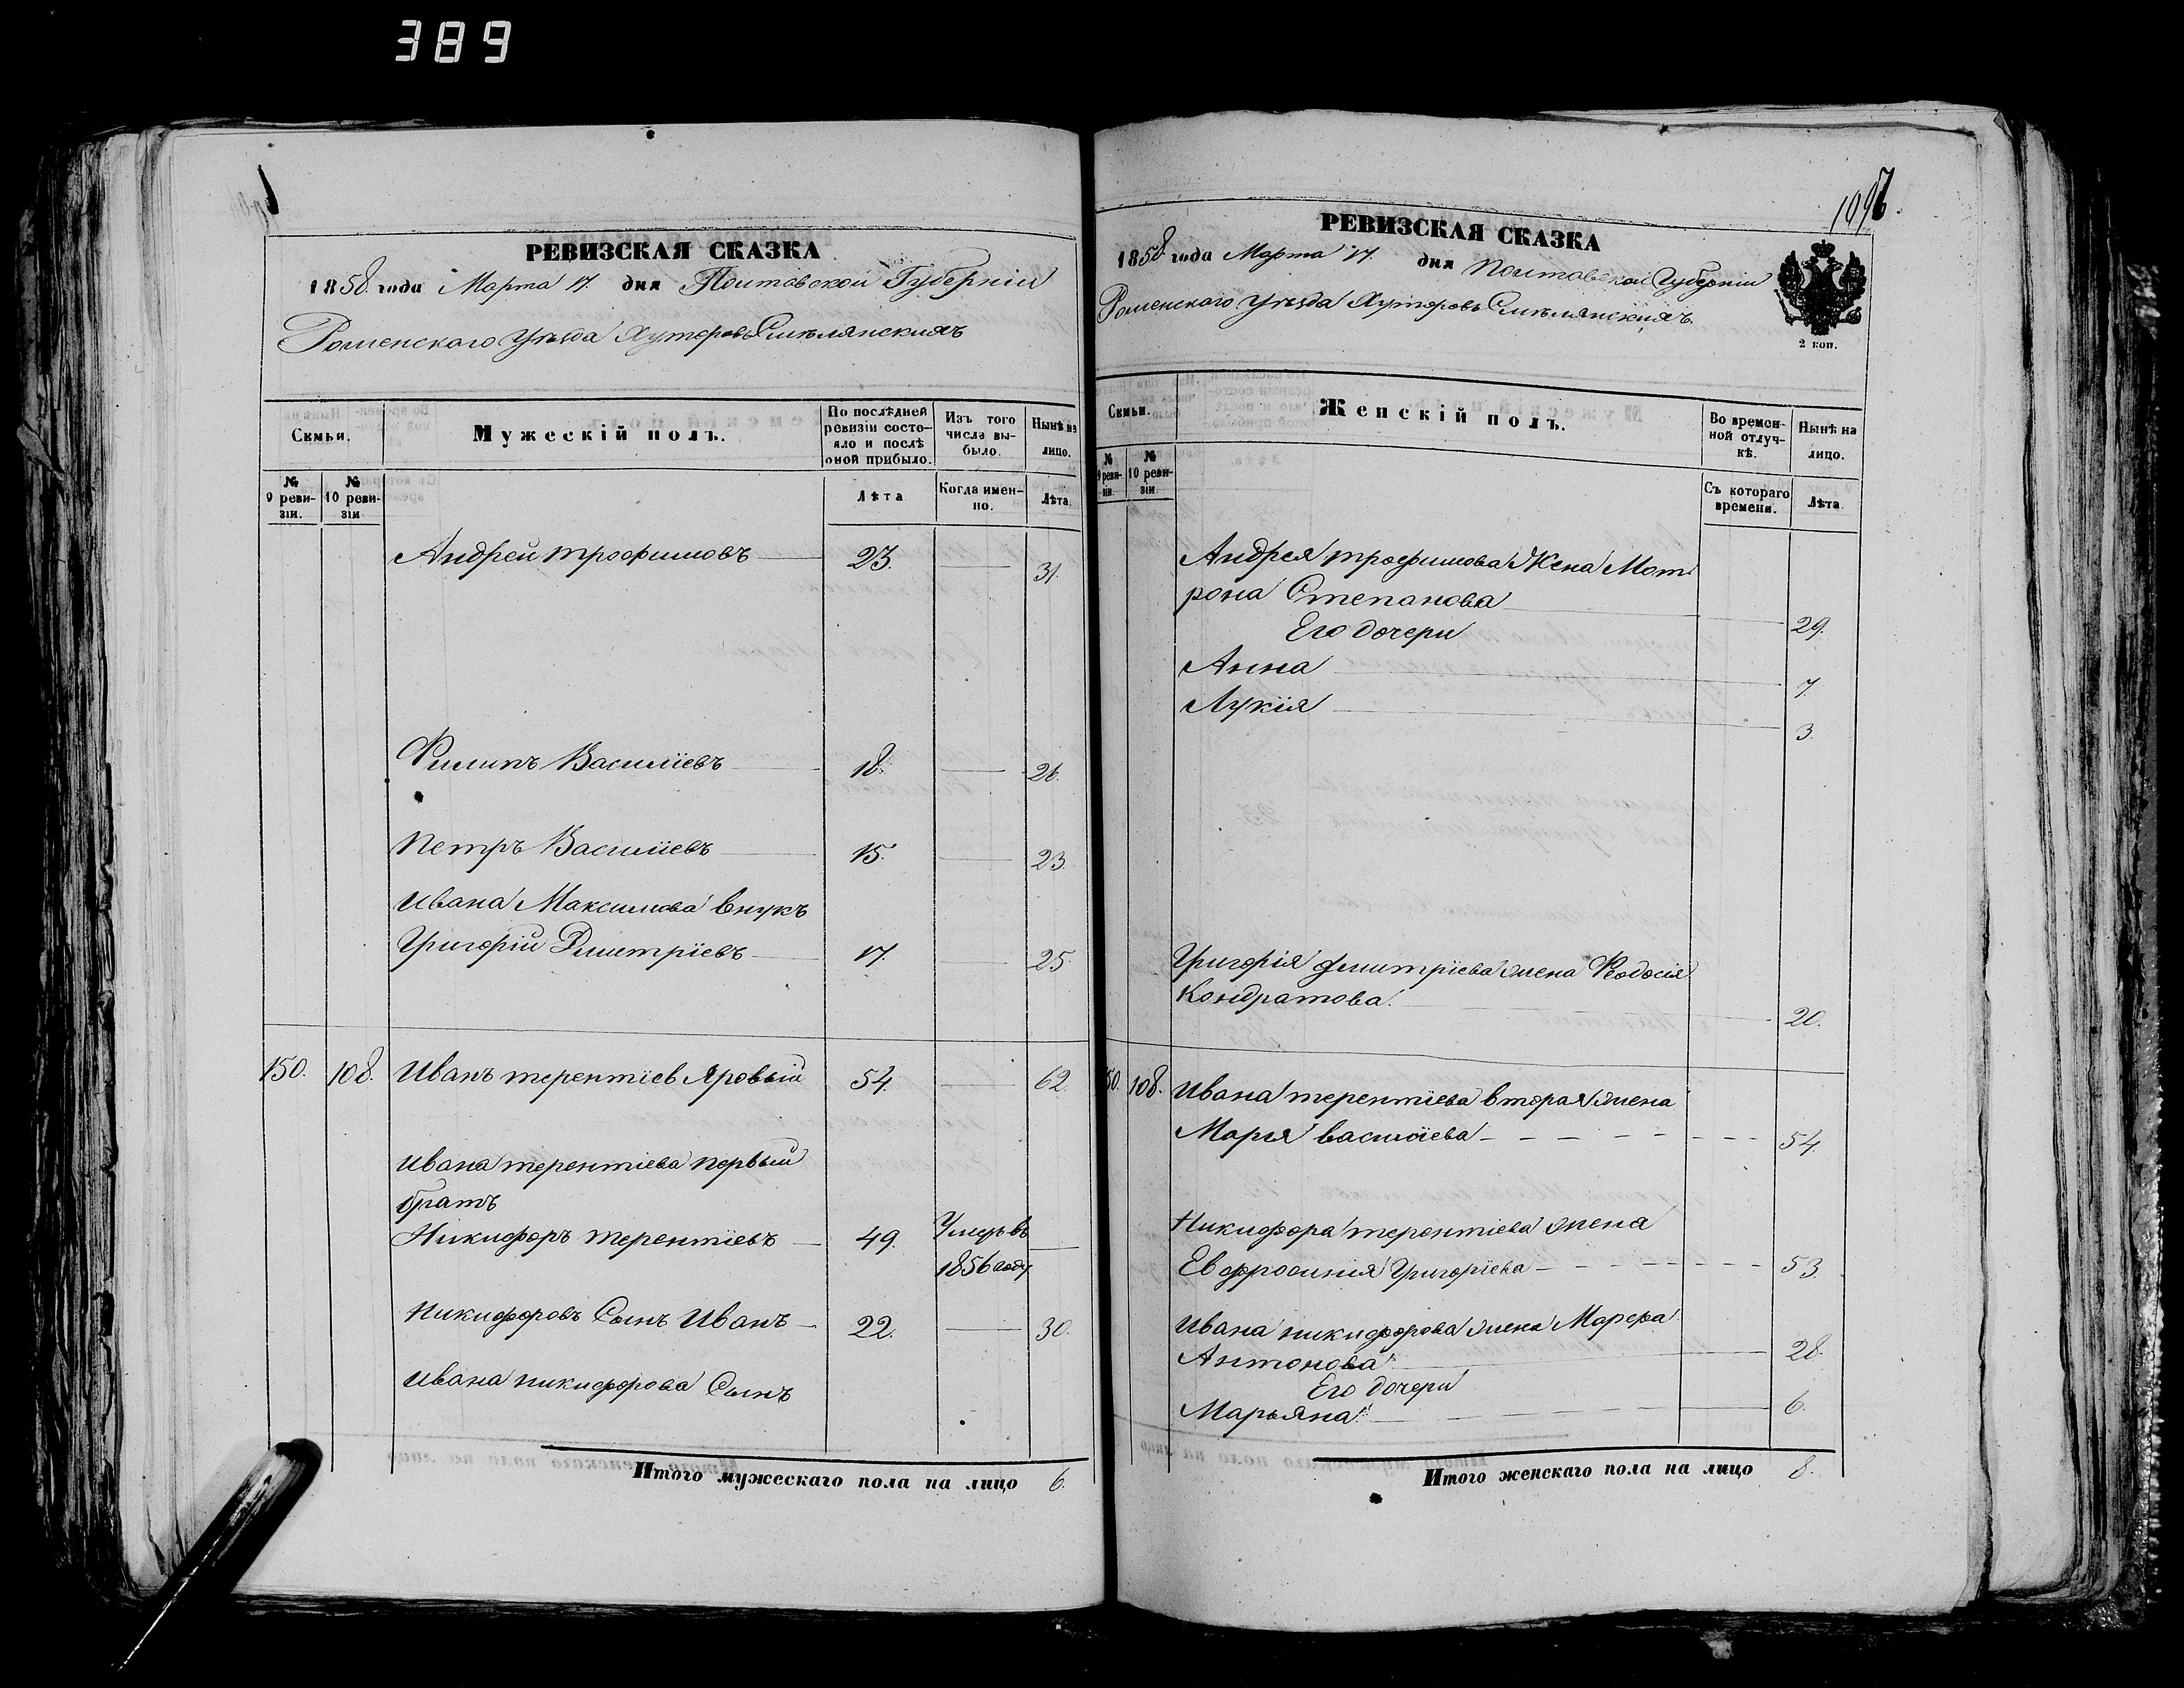 389
РЕВИЗСКАЯ СКАЗКА
1858 года Марта 17. дня Полтавской Губерніи
Роменского Уѣзда Хуторовъ Смѣлянскихъ
Семьи.
Мужескій полъ.
По послѣдней ревизіи состояло и послѣ оной прибыло.
Изъ того числа выбыло.
Нынѣ на лицо.
№ 9 ревизіи.
№ 10 ревизіи
Лѣта
Когда именно.
Лѣта.
Андрей трофимовъ 23. 31.
Филипъ Василіевъ 18. 26.
Петръ Василіевъ 15. 23.
Ивана Максимова внукъ
Григорій Дмитріевъ 17. 25.
150. 108. Иванъ терентіев Яровый 54. 62.
Ивана терентіева первый
братъ
Никифоръ терентіевъ 49. Умеръ въ
1856 году
Никифоровъ Сынъ Иванъ 22. 30.
Ивана никифорова Сынъ
Итого мужескаго пола на лицо 6.
РЕВИЗСКАЯ СКАЗКА
1858 года Марта 17. дня Полтавской Губерніи
Роменского Уѣзда Хуторовъ Смѣлянскихъ.
2 коп.
Семьи.
Женскій полъ.
Во временной отлучкѣ.
Нынѣ на лицо.
№ 9 ревизіи.
№ 10 ревизіи.
Съ котораго времени.
Лѣта.
Андрея трофимова Жена Мот
рона Степанова 29.
Его дочери
Анна 7.
Лукія 3.
Григорія дмитріева жена Феодосія
Кондратова. 20.
50. 108. Ивана терентіева вторая жена
Марія василіева 54.
Никифора терентіева жена
Евфросинія Григоріева 53.
Ивана никифорова жена Марфа
Антонова 28.
Его дочери
Марьяна 6.
Итого женскаго пола на лицо 8.